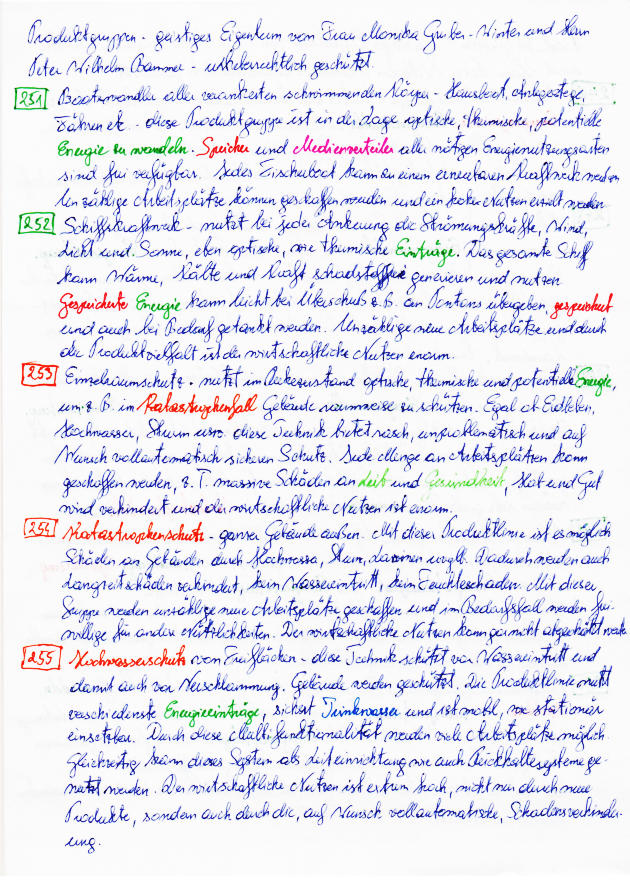 Produktgruppen - geistiges Eigentum von Frau Monika Gruber-Winter und Herrn
Peter Wilhelm Bammer - urheberrechtlich geschützt.
251 Bootswandler aller verankerten schwimmenden Körper - Hausboot, Anlegestege,
Fähren etc. - diese Produktgruppe ist in der Lage optische, thermische, potentielle
Energie zu wandeln. Speicher und Medienverteiler aller nötigen Energienutzungsarten
sind frei verfügbar. Jedes Fischerboot kann zu einem erneuerbaren Kraftwerk werden
Unzählige Arbeitsplätze können geschaffen werden und ein hoher Nutzen erzielt werden
252 Schiffskraftwerk - nutzt bei jeder Ankerung die Strömungskräfte, Wind,
Licht und Sonne, eben optische, wie thermische Einträge. Das gesamte Schiff
kann Wärme, Kälte und Kraft schadstofffrei generieren und nutzen.
Gespeicherte Energie kann leicht bei Überschuß z.B. an Pontons übergeben, gespeichert
und auch bei Bedarf getankt werden. Unzählige neue Arbeitsplätze und durch
die Produktvielfalt ist der wirtschaftliche Nutzen enorm.
253 Einzelraumschutz - nutzt im Ruhezustand optische, thermische und potentielle Energie,
um z.B. im Katastrophenfall Gebäude raumweise zu schützen. Egal ob Erdbeben,
Hochwasser, Sturm usw. diese Technik bietet rasch, unproblematisch und auf
Wunsch vollautomatisch sicheren Schutz. Jede Menge an Arbeitsplätzen kann
geschaffen werden, z.T. massive Schäden an Leib und Gesundheit, Hab und Gut
wird verhindert und der wirtschaftliche Nutzen ist enorm.
254 Katastrophenschutz - ganzer Gebäude außen. Mit dieser Produktlinie ist es möglich
Schäden an Gebäuden durch Hochwasser, Sturm, Lawinen uvgl. Dadurch werden auch
Langzeitschäden verhindert, kein Wassereintritt, kein Feuchteschaden. Mit dieser
Gruppe werden unzählige neue Arbeitsplätze geschaffen und im Bedarfsfall werden frei-
willige für andere Nützlichkeiten. Der wirtschaftliche Nutzen kann gar nicht abgeschätzt werden
255 Hochwasserschutz von Freiflächen - diese Technik schützt vor Wassereintritt und
damit auch vor Verschlammung. Gebäude werden geschützt. Die Produktlinie nutzt
verschiedenste Energieeinträge, sichert Trinkwasser und ist mobil, wie stationär
einsetzbar. Durch diese Multifunktionalität werden viele Arbeitsplätze möglich.
Gleichzeitig kann dieses System als Leiteinrichtung wie auch Rückhaltesysteme ge-
nutzt werden. Der wirtschaftliche Nutzen ist extrem hoch, nicht nur durch neue
Produkte, sondern auch durch die, auf Wunsch vollautomatische, Schadensverhinder-
ung.